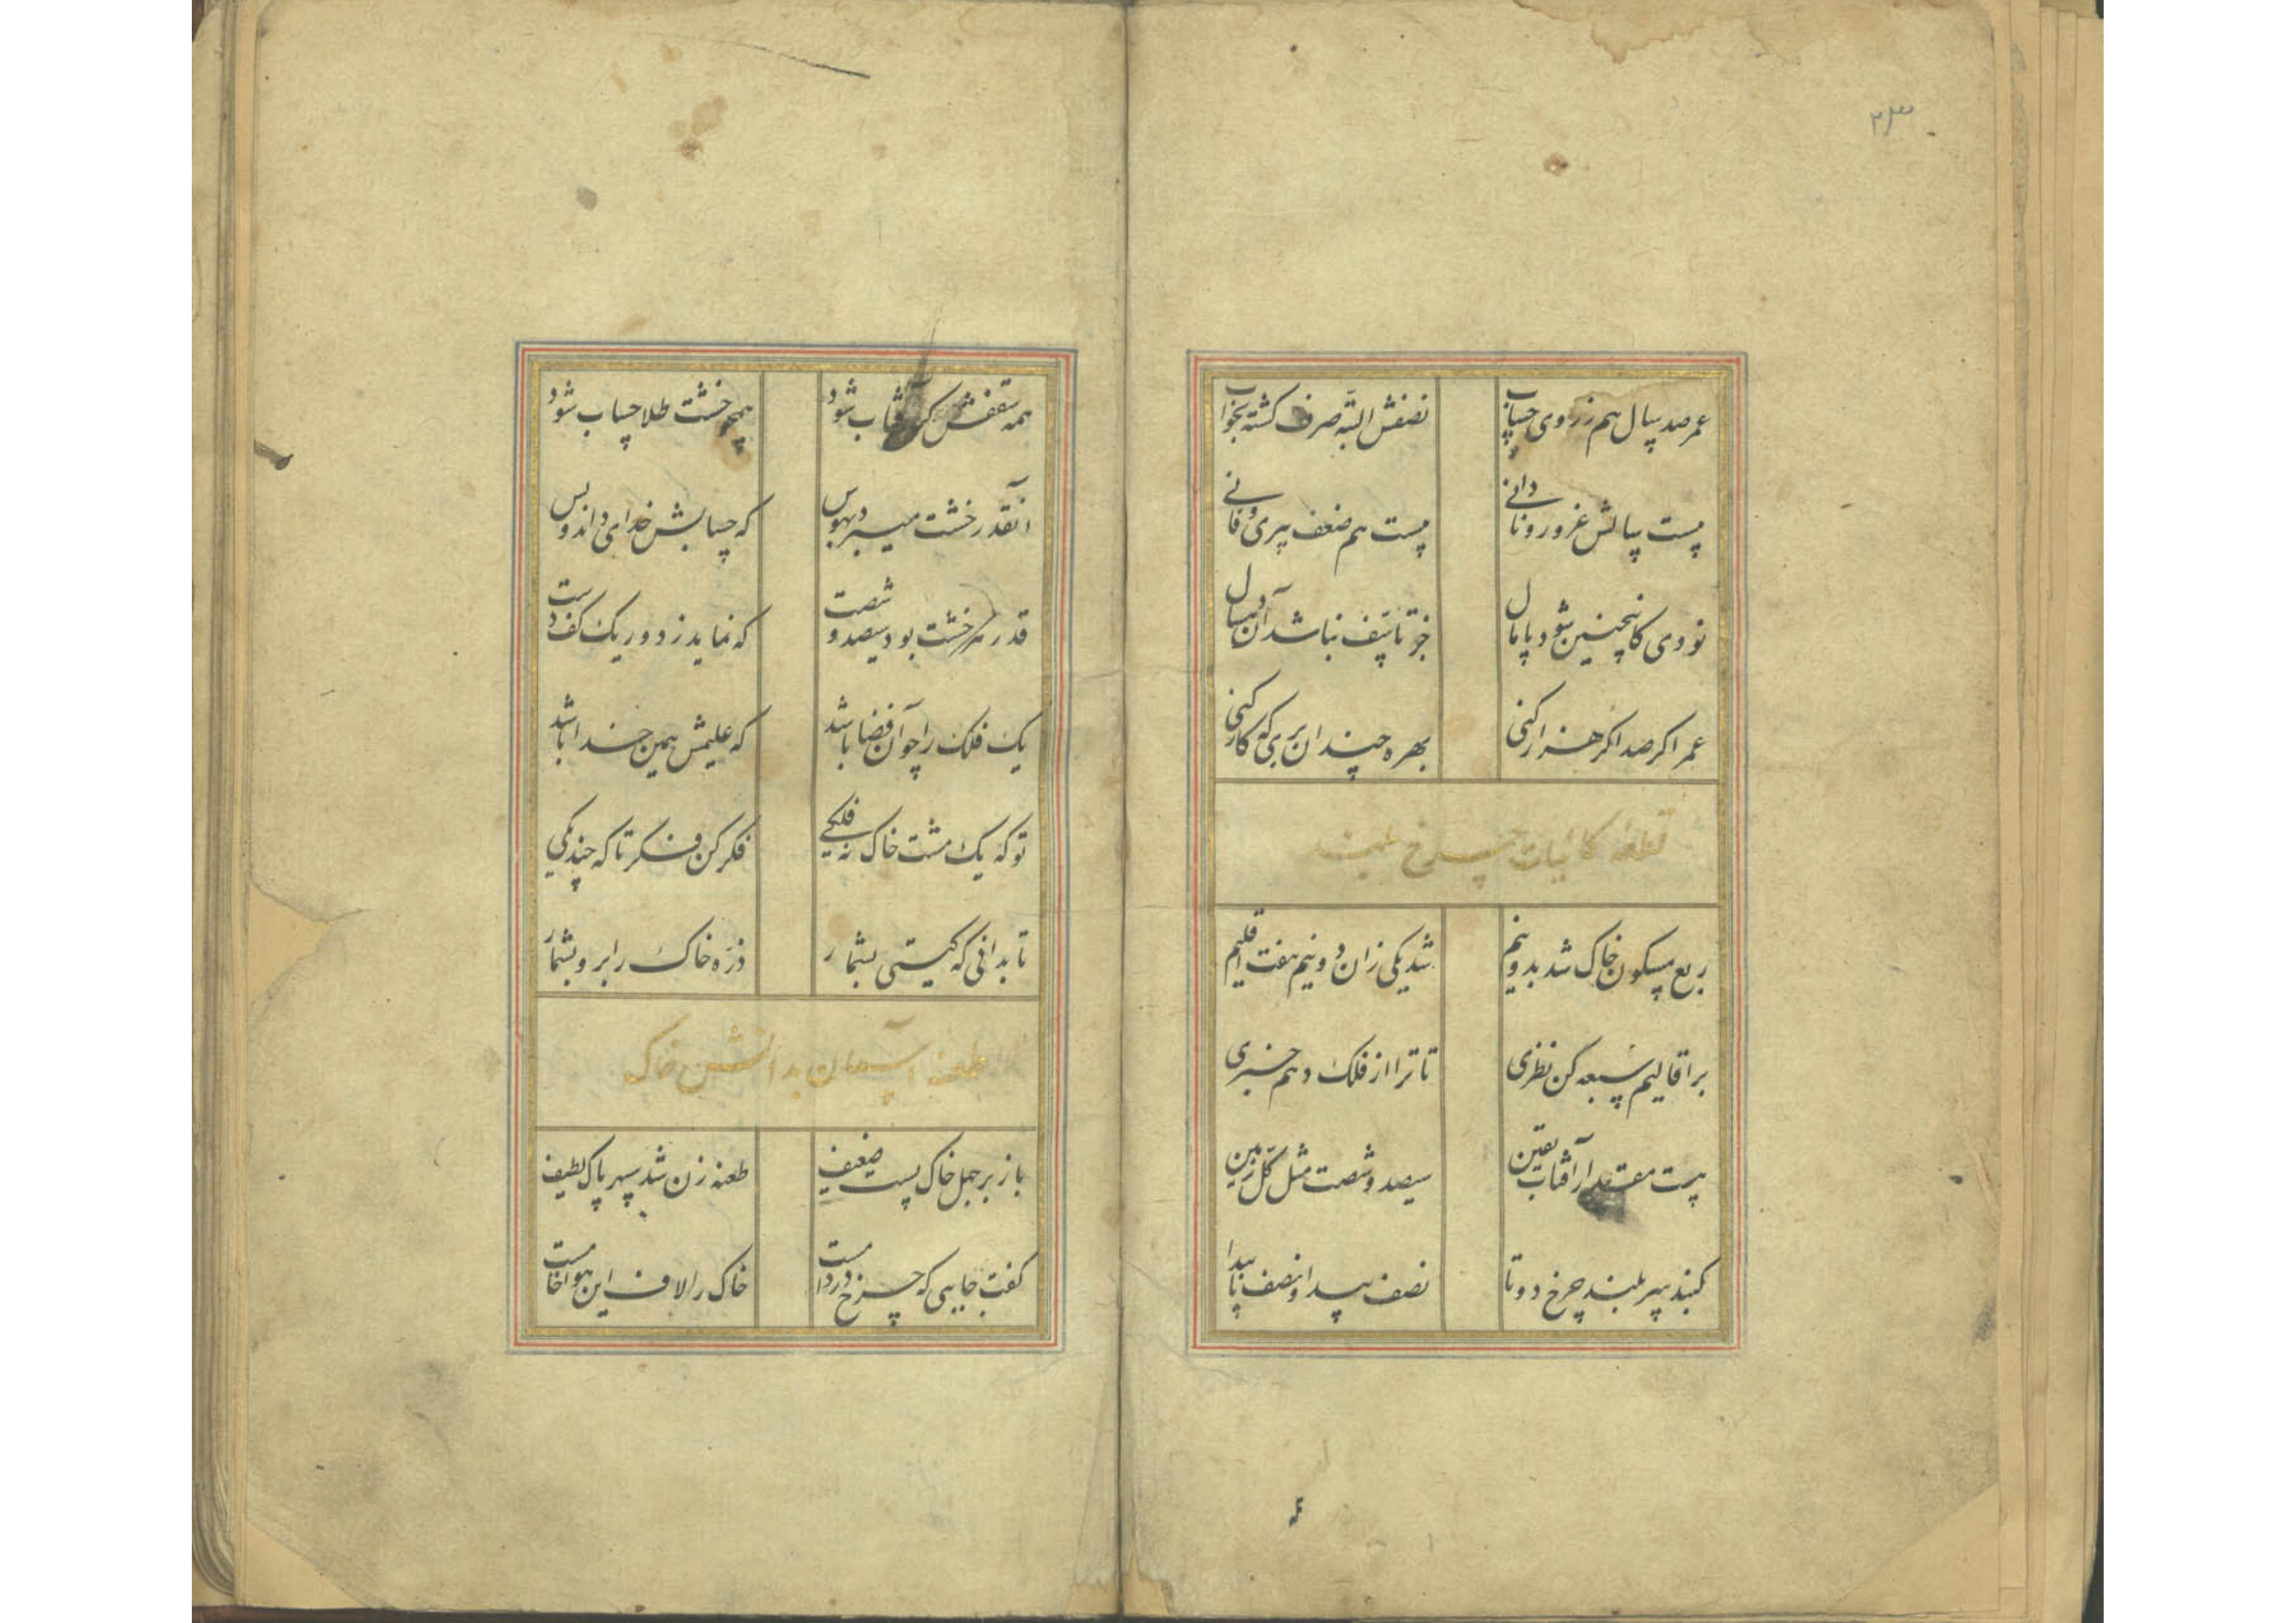 ۲۳
عمر صد سال هم ز روی حساب
نصفش البته صرف کشته بخواب
بیست سالش غرور و نادانی
بیست هم ضعف پیری و فانی
نودی کانچنین شود پامال
جز تاسف نباشد آن ده سال
عمر اکر صد اکر هزار کنی
بهره چندان بری که کار کنی
قطعه کائنات چرخ بلند
ربع مسکون خاک شد بدو نیم
شد یکی زان دو نیم هفت اقلیم
بر اقالیم سبعه کن نظری
تا ترا از فلک دهم خبری
هست مقدار آفتاب یقین
سیصد و شصت مثل کل زمین
کنبد پیر بلند چرخ دوتا
نصف پیدا و نصف ناپیدا
همه سقفش کر آفتاب شود
همچو خشت طلا حساب شود
آنقدر خشت میبرد بهوس
که حسابش خدای داند و بس
قدر هر خشت بود سیصد و شصت
که نماید ز دور یک کف دست
یک فلک را چو آن فضا باشد
که علیمش همین خدا باشد
تو که یک مشت خاک نه فلکی
فکر کن فکر تا که چند یکی
تا بدانی که کیستی بشمار
ذره خاک را برو بشمار
طعنه آسمان بدانشن خاک
باز بر جمل خاک پست ضعیف
طعنه زن شد سپهر پاک لطیف
کفت جایی که چرخ در دامست
خاک را لاف این هوا خامست